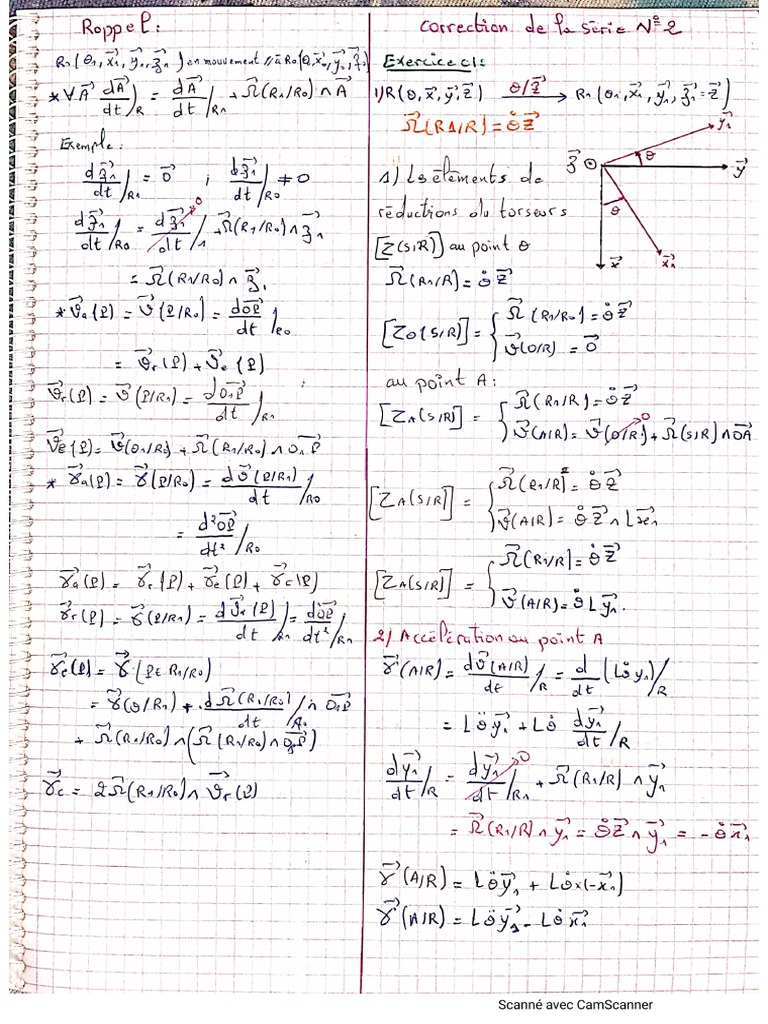 Rappel:
R₁(O₁, x₁→, y₁→, z₁→) en mouvement //à R₀(O, x₀→, y₀→, z₀→)
* ∀A→ dA→/dt)/R = dA→/dt /R₁ + Ω→(R₁/R₀) ∧ A→
Exemple:
dz₁→/dt /R₁ = 0→ ; dz₁→/dt /R₀ ≠ 0
dz₁→/dt /R₀ = dz₁→/dt /1 →0 + Ω→(R₁/R₀) ∧ z₁→
= Ω→(R₁/R₀) ∧ z₁→
* V→a(P) = V→(P/R₀) = dOP→/dt /R₀
= V→r(P) + V→e(P)
V→r(P) = V→(P/R₁) = dO₁P→/dt /R₁
V→e(P) = V→(O₁/R₀) + Ω→(R₁/R₀) ∧ O₁P→
* γ→a(P) = γ→(P/R₀) = dV→(P/R₁)/dt /R₀
= d²OP→/dt² /R₀
γ→a(P) = γ→r(P) + γ→e(P) + γ→c(P)
γ→r(P) = γ→(P/R₁) = dV→r(P)/dt /R₁ = dOP→/dt² /R₁
γ→e(P) = γ→(P∈R₁/R₀)
= γ→(O/R₁) + dΩ→(R₁/R₀)/dt /R₀ ∧ O₁P→
+ Ω→(R₁/R₀) ∧ (Ω→(R₁/R₀) ∧ O₁P→)
γ→c = 2Ω→(R₁/R₀) ∧ V→r(P)
correction de la série N°2
Exercice 1:
1) R(O, x→, y→, z→) θ/z→ ⟶ R₁(O₁, x₁→, y₁→, z₁→=z→)
Ω→(R1/R) = θ̇ z→
y₁→
z→ ⊙ θ y→
θ
x→ x₁→
1) Les éléments de
réductions du torseurs
[Z(S/R)] au point O
Ω→(R₁/R) = θ̇ z→
[Z₀(S/R)] = { Ω→(R₁/R₀) = θ̇ z→
V→(O/R) = 0→
au point A:
[ZA(S/R)] = { Ω→(R₁/R) = θ̇ z→
V→(A/R) = V→(O/R) →0 + Ω→(S/R) ∧ OA→
[ZA(S/R)] = { Ω→(R₁/R) = θ̇ z→
V→(A/R) = θ̇ z→ ∧ Lx₁→
[ZA(S/R)] = { Ω→(R₁/R) = θ̇ z→
V→(A/R) = θ̇ L y₁→.
2) Accélération au point A
γ→(A/R) = dV→(A/R)/dt /R = d/dt (Lθ̇ y₁→)/R
= Lθ̈ y₁→ + Lθ̇ dy₁→/dt /R
dy₁→/dt /R = dy₁→/dt /R₁ →0 + Ω→(R₁/R) ∧ y₁→
= Ω→(R₁/R) ∧ y₁→ = θ̇ z→ ∧ y₁→ = -θ̇ x₁→
γ→(A/R) = Lθ̈ y₁→ + Lθ̇ × (-x₁→)
γ→(A/R) = Lθ̈ y₁→ - Lθ̇ x₁→
Scanné avec CamScanner